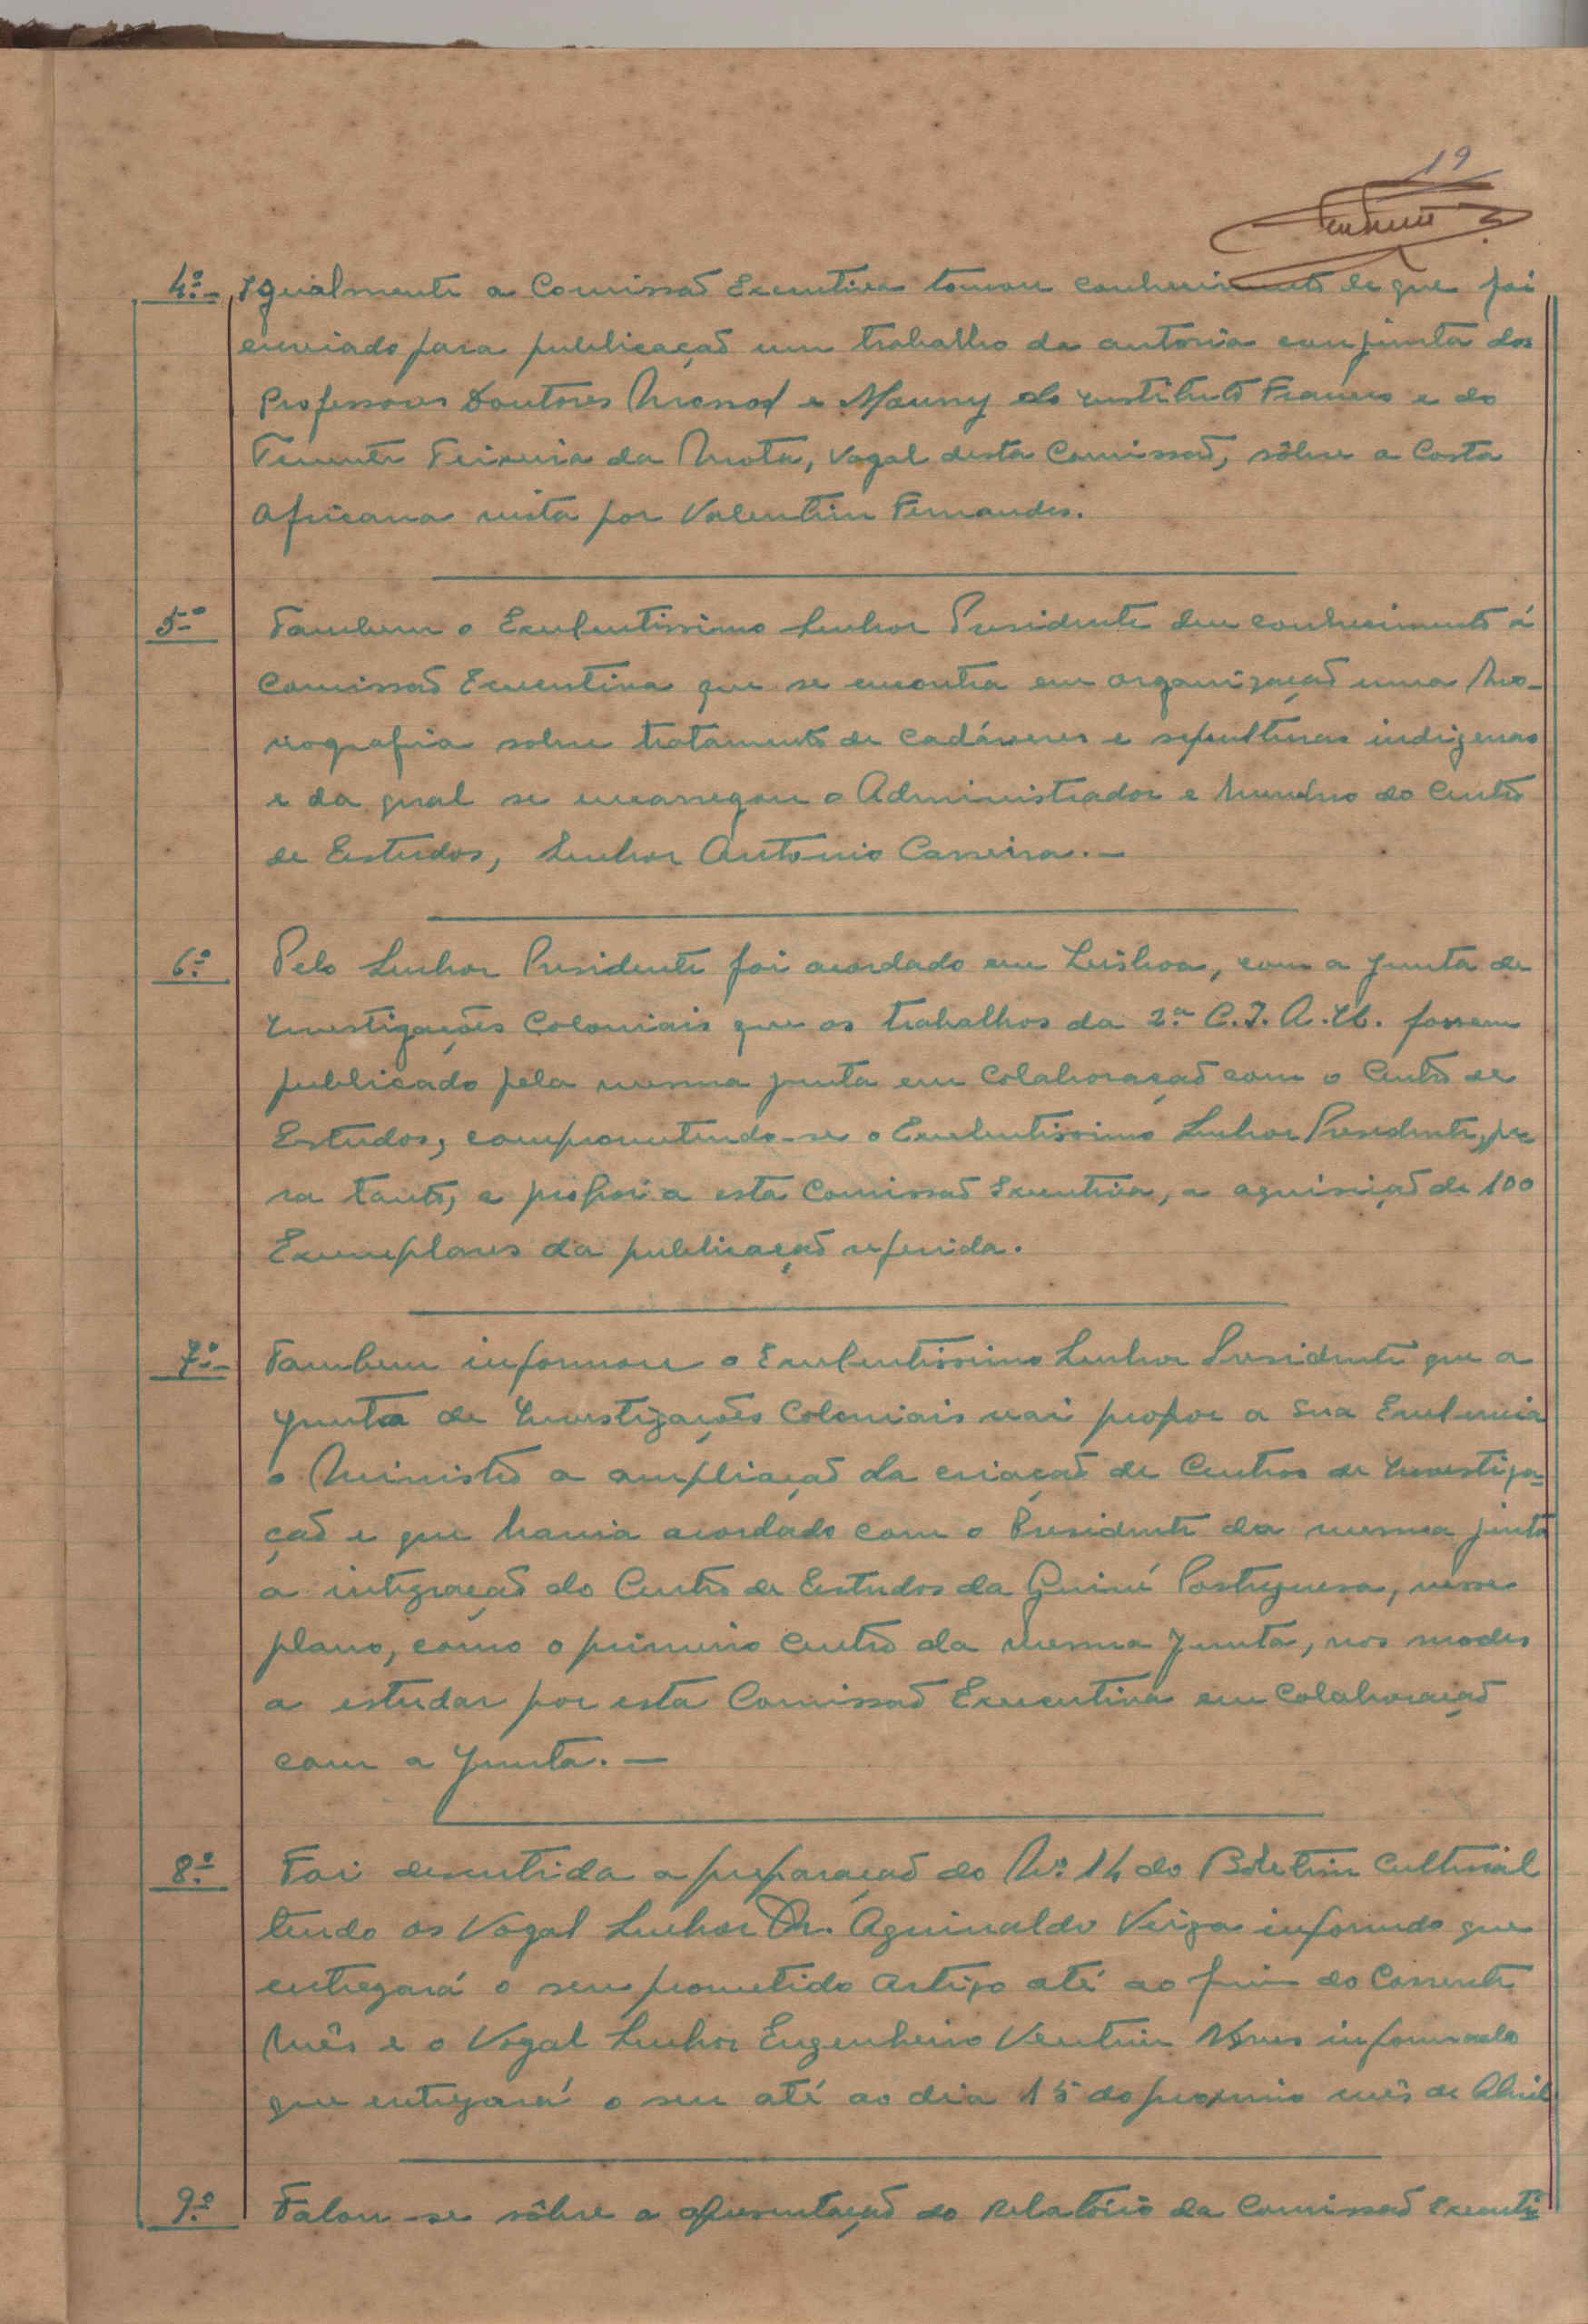 19
4º- Igualmente a Comissão Executiva tomou conhecimento de que foi
enviado para publicação um trabalho da autoria conjunta dos
Professores Doutores Monod e Mauny do Instituto Francês e do
Tenente Teixeira da Mota, vogal desta Comissão, sôbre a Costa
Africana vista por Valentim Fernandes.
5º Tambem o Excelentissimo Senhor Presidente deu conhecimento á
Comissão Executiva que se encontra em organização uma Mo-
nografia sobre tratamento de cadáveres e sepulturas indigenas
e da qual se encarregou o Administrador e Membro do Centro
de Estudos, Senhor Antonio Carreira.-
6º Pelo Senhor Presidente foi acordado em Lisboa, com a Junta de
Investigações Coloniais que os trabalhos da 2ª C.I.A.O. fossem
publicado pela mesma junta em colaboração com o Centro de
Estudos, comprometendo-se o Excelentissimo Senhor Presidente, pa
ra tanto, a propor a esta Comissão Executiva, a aquisição de 100
Exemplares da publicação referida.
7º- Tambem informou o Excelentissimo Senhor Presidente que a
Junta de Investigações Coloniais vai propor a Sua Excelencia
o Ministro a ampliação da criação de Centros de Investiga-
ção e que havia acordado com o Presidente da mesma junta
a integração do Centro de Estudos da Guiné Portuguesa, nesse
plano, como o primeiro Centro da mesma Junta, nos modos
a estudar por esta Comissão Executiva em colaboração
com a Junta.-
8º Foi descutida a preparação do Nº 14 do Boletim Cultural
tendo os Vogal Senhor Dr. Aguinaldo Veiga informdo que
entregará o seu prometido artigo até ao fim do Corrente
Mês e o Vogal Senhor Engenheiro Ventim informado
que entregará o seu até ao dia 15 do proximo mês de Abril
9º Falou-se sôbre a apresentação do Relatório da Comissão Executi